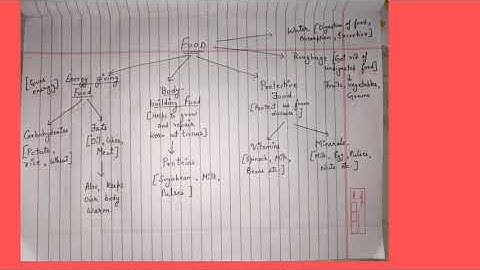 FOOD
Water [Digestion of food,
Absorption, Excretion]
Roughage [Get rid of
undigested food]
Fruits, Vegetables,
Grains
[Gives
energy]
Energy giving
Food
Body-
building Food
[Helps to grow
and repair
worn out tissues]
Protective
Food
[Protect us from
diseases]
Carbohydrates
[Potato,
rice, Wheat]
Fats
[Oil, Ghee,
Meat]
Also, keeps
Our body
Warm.
Proteins
[Soyabean, Milk,
Pulses]
Vitamins
[Spinach, Milk,
Beans etc.]
Minerals
[Milk, Egg, Pulses,
Nuts etc.]